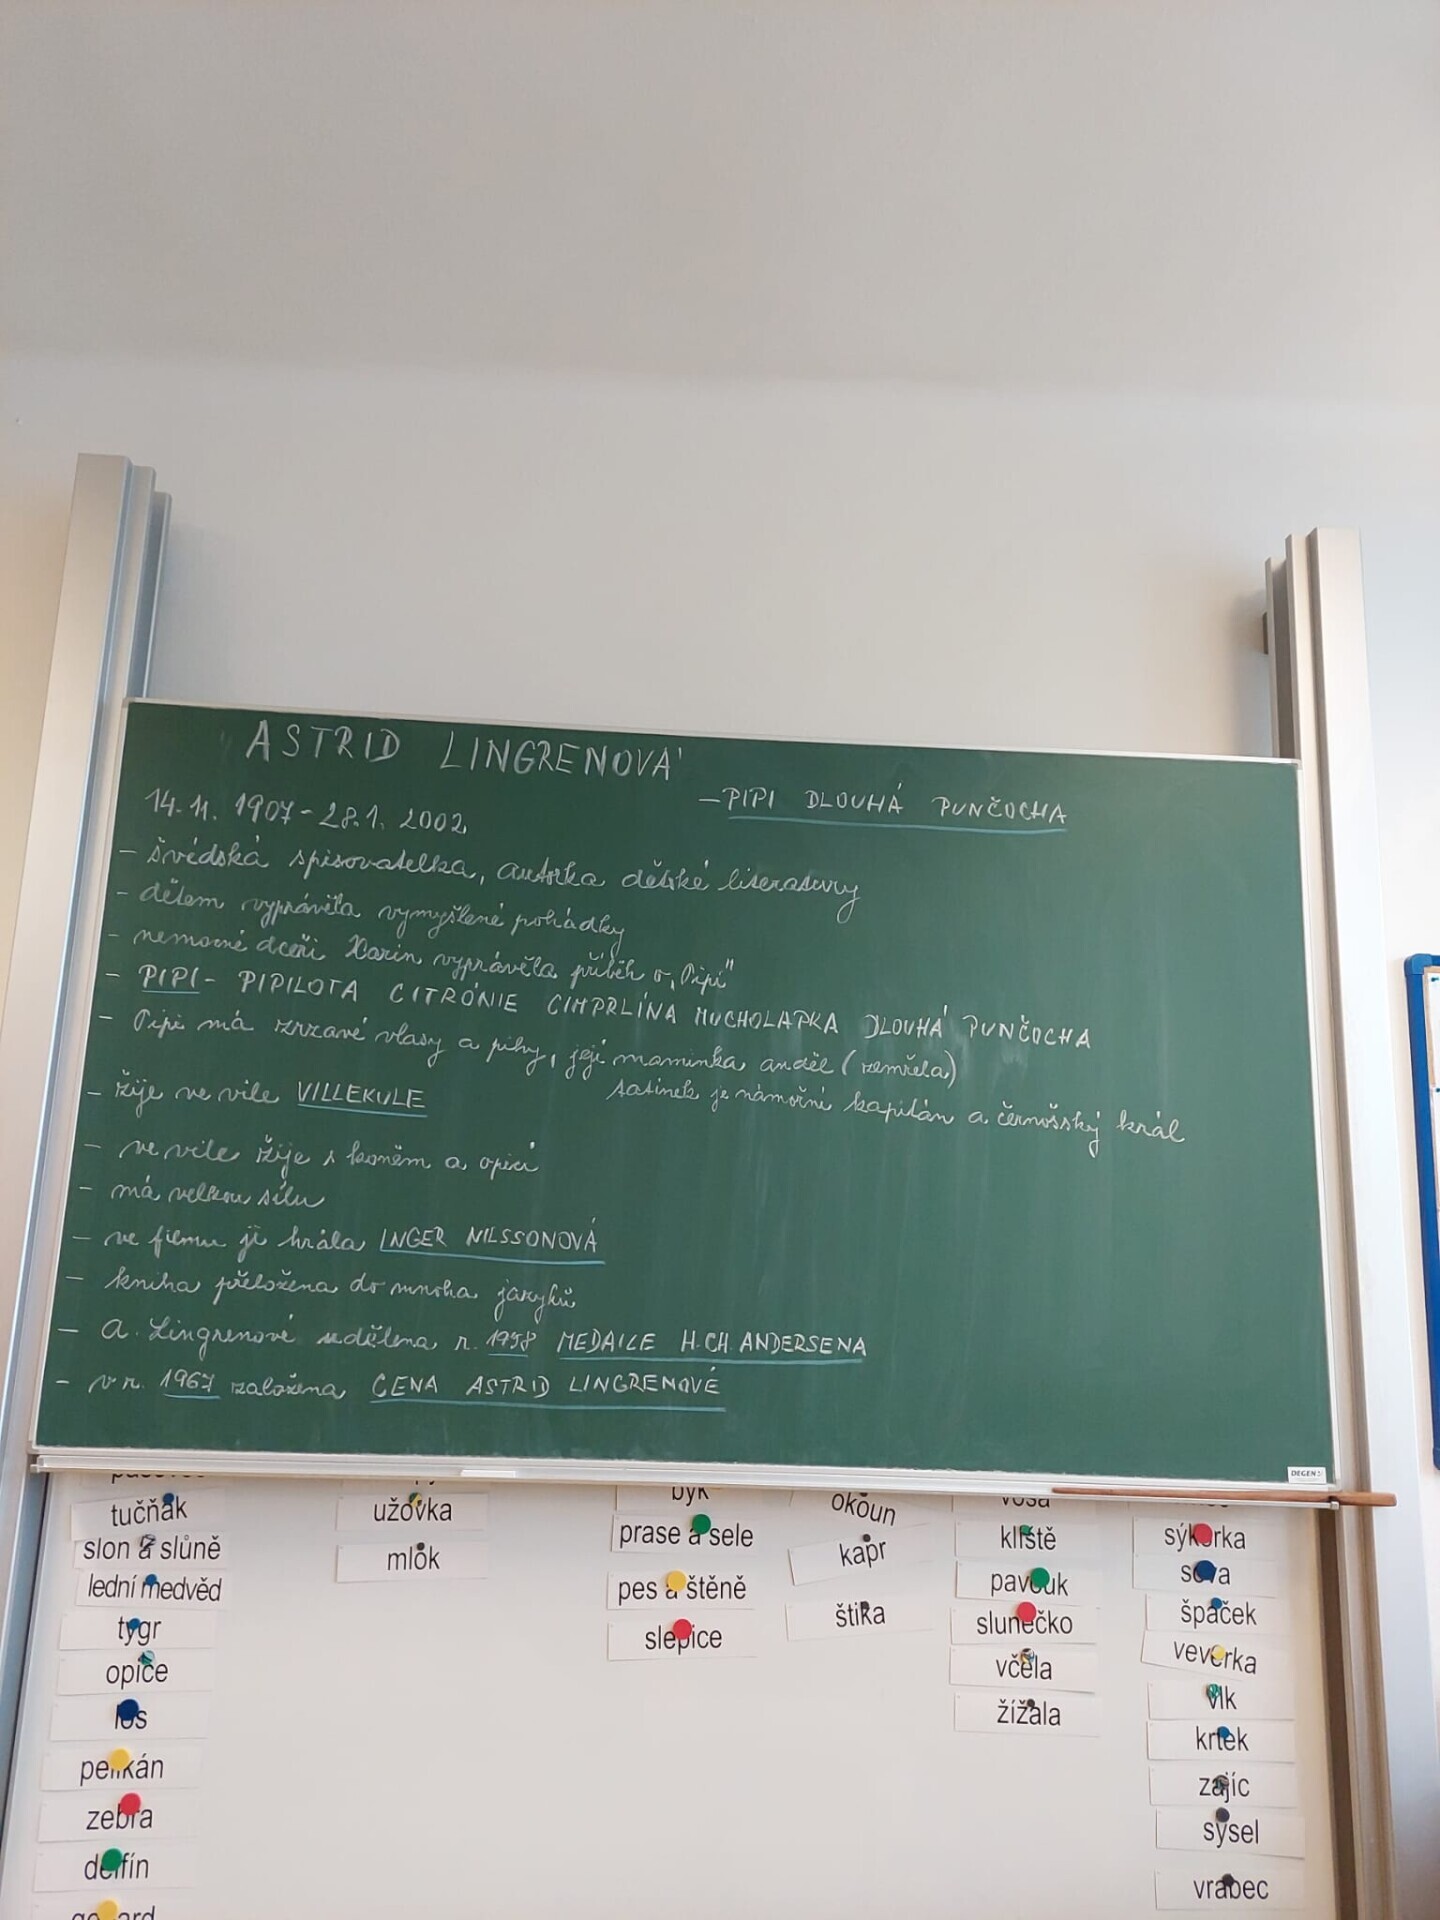 ASTRID LINGRENOVÁ
14.11. 1907-28.1. 2002
- PIPI DLOUHÁ PUNČOCHA
- švédská spisovatelka, autorka dětské literatury
- dětem vyprávěla vymyšlené pohádky
- nemocné dceři Karin vyprávěla příběh o „Pipi"
- PIPI - PIPILOTA CITRÓNIE CIMPRLÍNA MUCHOLAPKA DLOUHÁ PUNČOCHA
- Pipi má zrzavé vlasy a pihy, její maminka anděl (zemřela)
tatínek je námořní kapitán a černošský král
- žije ve vile VILLEKULE
- ve vile žije s koněm a opicí
- má velkou sílu
- ve filmu ji hrála INGER NILSSONOVÁ
- kniha přeložena do mnoha jazyků
- A. Lingrenové udělena r. 1958 MEDAILE H.CH. ANDERSENA
- v r. 1967 založena CENA ASTRID LINGRENOVÉ
DEGEN
tučňák
slon a slůně
lední medvěd
tygr
opice
los
pelikán
zebra
delfín
užovka
mlok
býk
prase a sele
pes a štěně
slepice
okoun
kapr
štika
vosa
klíště
pavouk
slunéčko
včela
žížala
sýkorka
sova
špaček
veverka
vlk
krtek
zajíc
sysel
vrabec